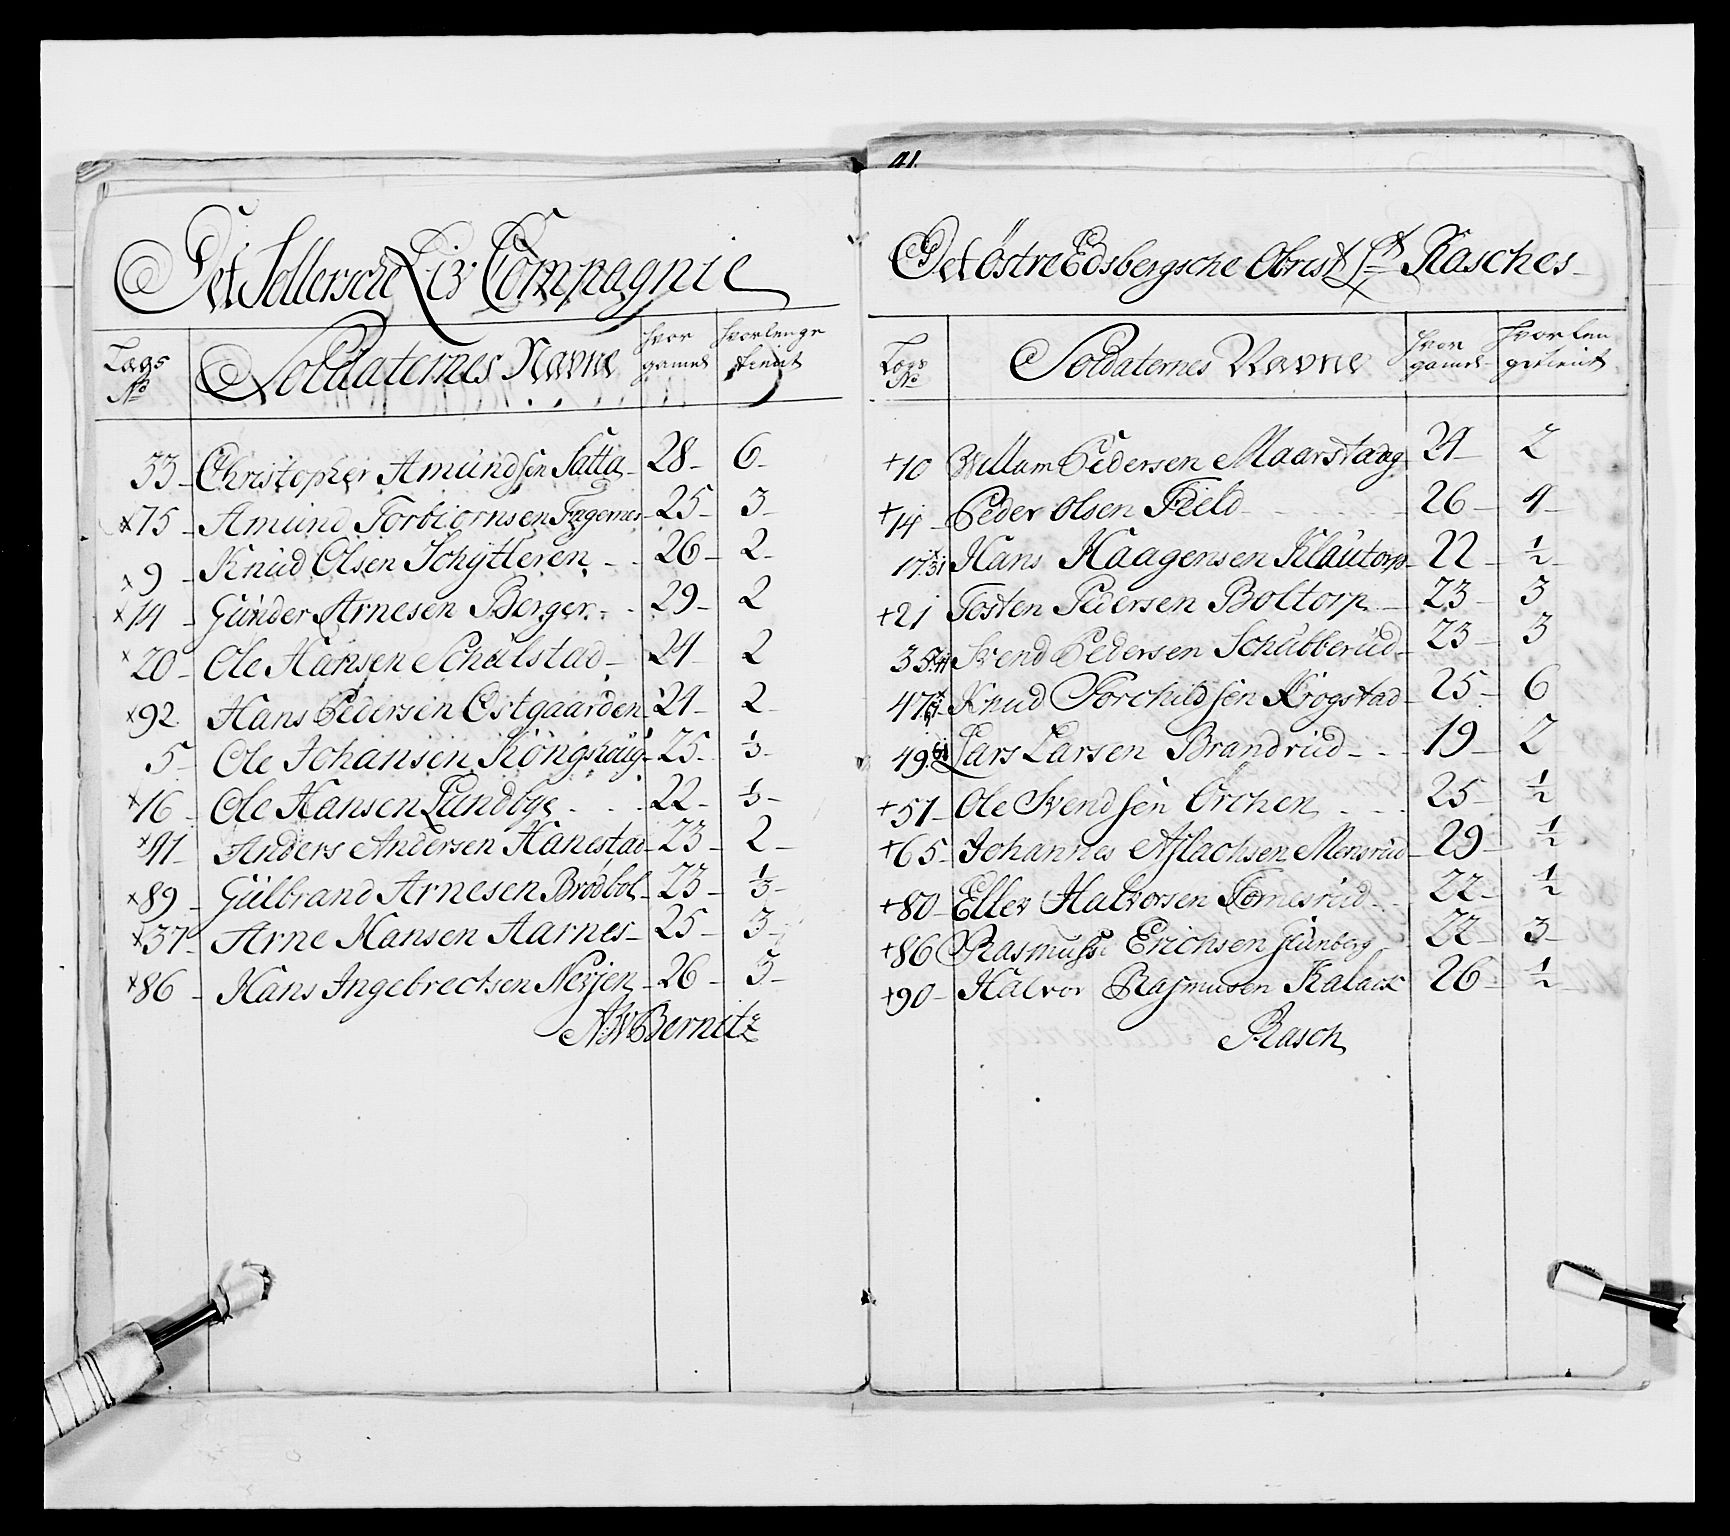 Det Sollersche Liv Compagnie
Lægs No Soldaternes Navne hvor gamel hvorlenge tient
33 Christopher Amundsen Satta 28 6
x 75 Amund Torbiornsen Fingernes 25 3
x 9 Knud Olsen Schytteren 26 2
x 14 Gunder Arnesen Berger 29 2
x 20 Ole Hansen Schulstad 24 2
x 92 Hans Pedersen Ostgaarden 24 2
5 Ole Johansen Kongshaug 25 1/3
x 16 Ole Hansen Lundbye 22 1/3
x 41 Anders Andersen Hanestad 23 2
x 89 Gulbrand Arnesen Brodbol 23 1/3
x 37 Arne Hansen Aarnes 25 3
x 86 Hans Ingebrechtsen Nerjen 26 3
A:W: Bernitz
41.
Det Östre Edsbergsche Obrist Lt Rasches
Lægs No Soldaternes Navne hvor gamel hvor len getient
+ 10 Willum Pedersen Maarstang 24 2
+ 14 Peder Olsen Field 26 4
17 Hans Haagensen Klautorp 22 1/2
+ 21 Tosten Pedersen Boltorp 23 3
35 Svend Pedersen Schubberud 23 3
47 Knud Torchildsen Krogstad 25 6
49 Lars Larsen Brandrud 19 2
+ 51 Ole Svendsen Orchen 25 1/2
+ 65 Johannes Aslachsen Mensrud 29 1/2
+ 80 Ellev Halvorsen Tomesrud 22 1/2
+ 86 Rasmus Erichsen Grünberg 22 3
+ 90 Halvor Rasmusen Kalack 26 1/2
Rasch